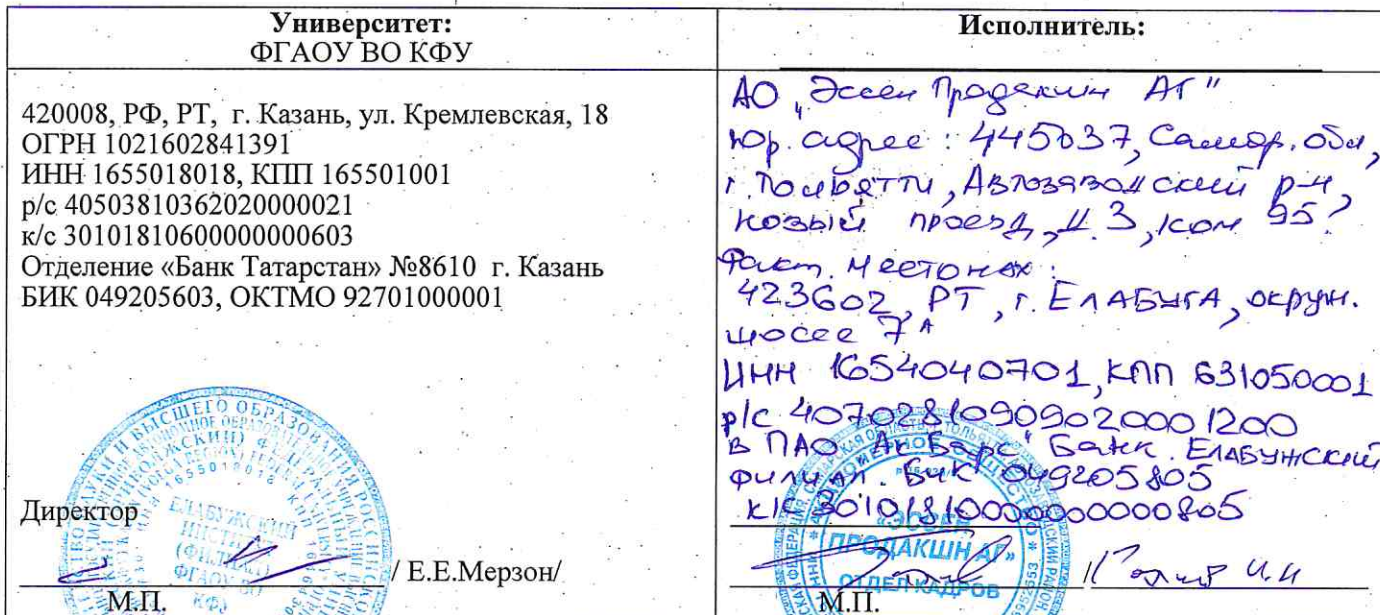 Университет:
ФГАОУ ВО КФУ
420008, РФ, РТ, г. Казань, ул. Кремлевская, 18
ОГРН 1021602841391
ИНН 1655018018, КПП 165501001
р/с 40503810362020000021
к/с 30101810600000000603
Отделение «Банк Татарстан» №8610 г. Казань
БИК 049205603, ОКТМО 92701000001
Директор
/ Е.Е.Мерзон/
М.П.
ЕЛАБУЖСКИЙ
ИНСТИТУТ
(ФИЛИАЛ)
ФГАОУ ВО
КФУ
Исполнитель:
АО „Эссен Продакшн АГ"
Юр. адрес: 445037, Самар. обл,
г. Тольятти, Автозаводский р-н,
новый проезд, д. 3, ком 95?
Факт. местонах:
423602, РТ, г. ЕЛАБУГА, окруж.
шоссе 7А
ИНН 1654040701, КПП 631050001
р/с 40702810909020001200
в ПАО „Ак Барс" Банк. Елабужский
филиал. БИК 049205805
к/с 30101810000000000805
«ЭССЕН
ПРОДАКШН АГ»
ОТДЕЛ КАДРОВ
М.П.